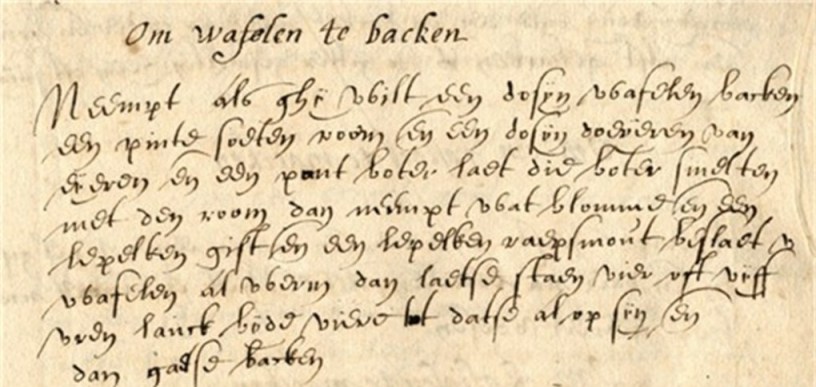 Om wafelen te backen
Neempt als ghÿ wilt een dosÿn wafelen backen
een pinte soeten room en een dosÿn doeÿeren van
eÿeren en een pont boter laet die boter smelten
met den room dan neempt wat blomme en een
lepelken gist en een lepelken raepsmout beslaet u
wafelen al werm dan laetse staen vier oft vÿff
uren lanck bÿde viere tot datse al op sÿn en
dan gaetse backen